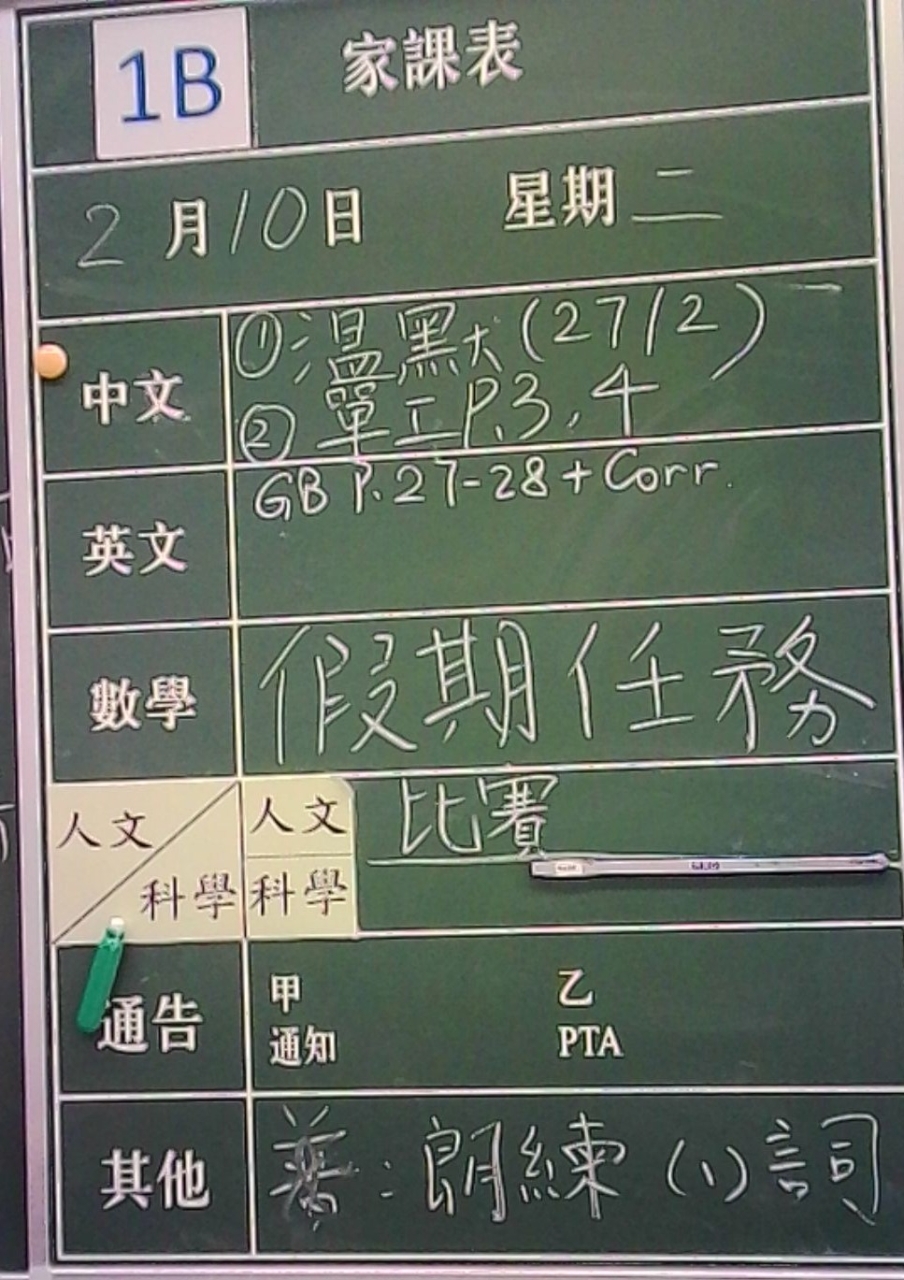 1B 家課表
2月10日 星期二
中文 ①温默(27/2)
②單工P.3,4
英文 GB P.27-28+Corr.
數學 假期任務
人文 科學 人文 比賽
科學
通告 甲 乙
通知 PTA
其他 普:朗練(1)詞